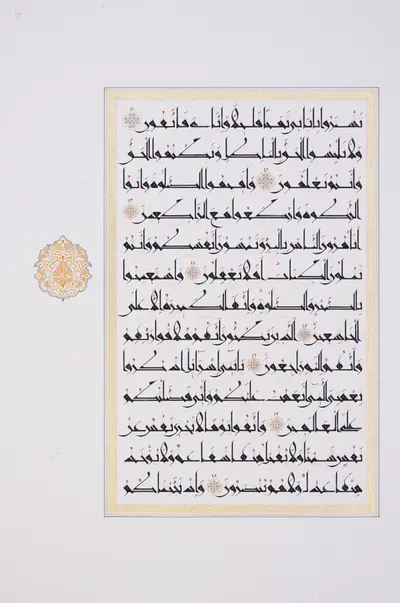 تشتروا باياتي ثمنا قليلا واياي فاتقون
ولا تلبسوا الحق بالباطل وتكتموا الحق
وانتم تعلمون واقيموا الصلوة واتوا
الزكوة واركعوا مع الراكعين
اتامرون الناس بالبر وتنسون انفسكم وانتم
تتلون الكتاب افلا تعقلون واستعينوا
بالصبر والصلوة وانها لكبيرة الا على
الخاشعين الذين يظنون انهم ملاقوا ربهم
وانهم اليه راجعون يا بني اسرائيل اذكروا
نعمتي التي انعمت عليكم واني فضلتكم
على العالمين واتقوا يوما لا تجزي نفس عن
نفس شيئا ولا يقبل منها شفاعة ولا يؤخذ
منها عدل ولا هم ينصرون واذ نجيناكم